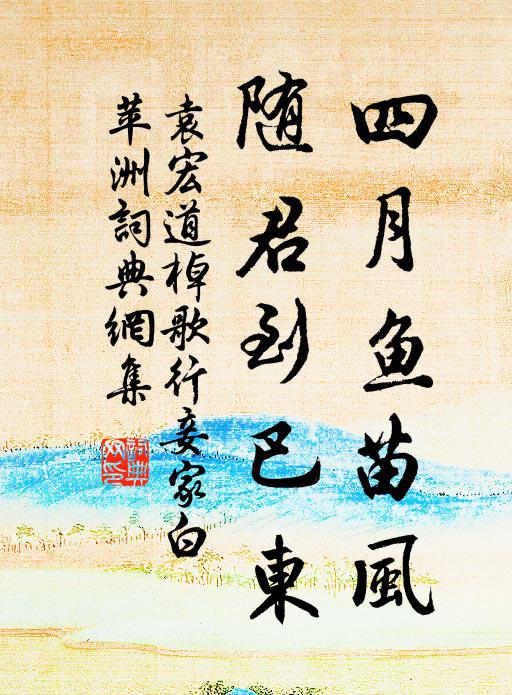 四月鱼苗風
随君到巴東
袁宏道棹歌行妾家白
苹洲詞典網集
詞典